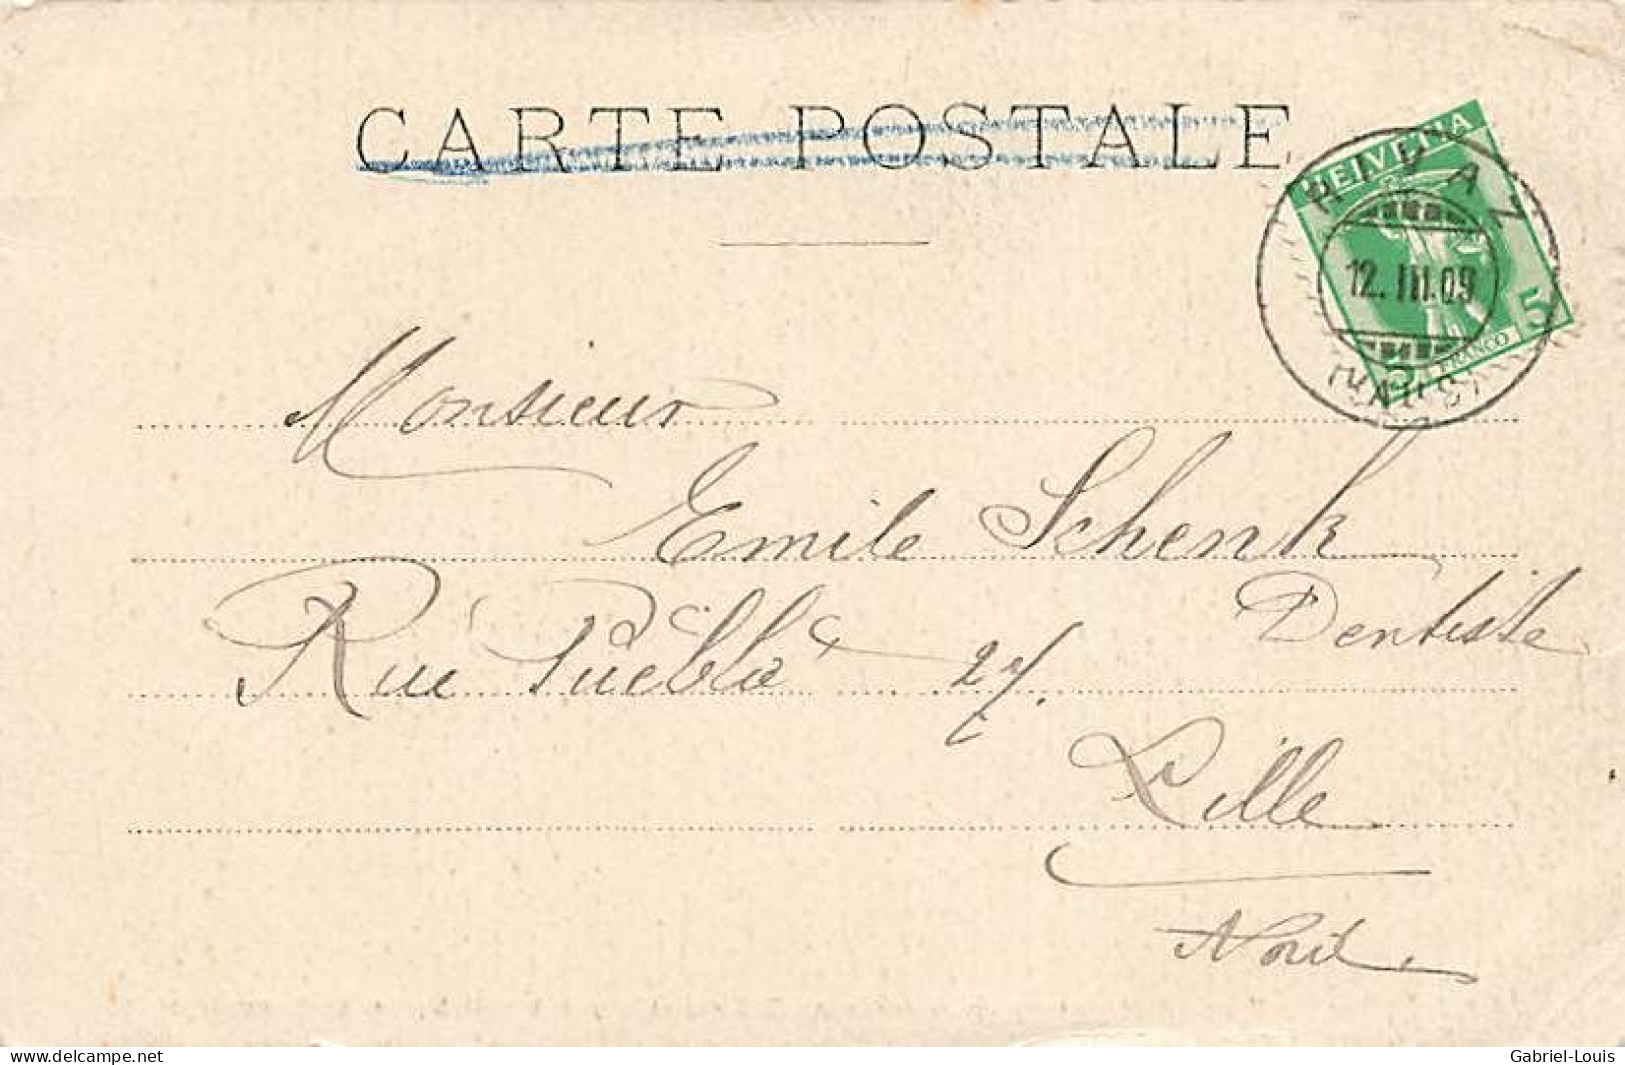 CARTE POSTALE
HELVETIA
RIVAZ
12.III.09
5 FRANCO 5
Monsieur
Emile Schenk
Dentiste
Rue Puebla 27.
Lille
Nord.
delcampe.net
Gabriel-Louis